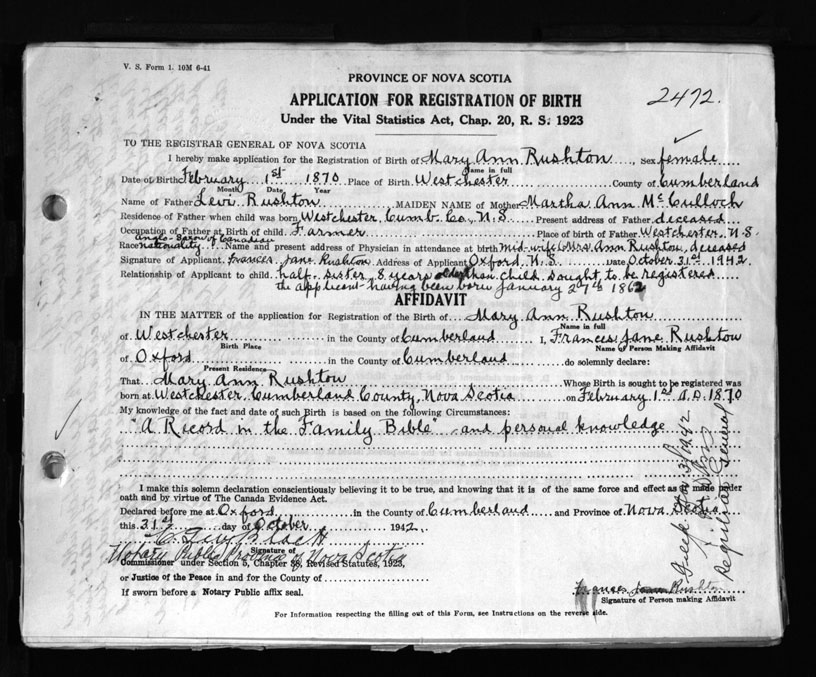 V. S. Form 1. 10M 6-41
PROVINCE OF NOVA SCOTIA
APPLICATION FOR REGISTRATION OF BIRTH
2472.
Under the Vital Statistics Act, Chap. 20, R. S. 1923
TO THE REGISTRAR GENERAL OF NOVA SCOTIA
I hereby make application for the Registration of Birth of Mary Ann Rushton, Sex female
Name in full
Date of Birth February 1st 1870 Place of Birth Westchester County of Cumberland
Month Date Year
Name of Father Levi Rushton MAIDEN NAME of Mother Martha Ann McCullock
Residence of Father when child was born Westchester, Cumb. Co., N.S. Present address of Father deceased
Occupation of Father at Birth of child Farmer Place of birth of Father Westchester N.S.
Anglo-Saxon of Canadian
Race nationality Name and present address of Physician in attendance at birth mid-wife Mrs. Ann Rushton, deceased
Signature of Applicant Frances Jane Rushton Address of Applicant Oxford, N.S. Date October 31st 1942
Relationship of Applicant to child half-sister 8 years older than child sought to be registered
the applicant having been born January 27th 1862
AFFIDAVIT
IN THE MATTER of the application for Registration of the Birth of Mary Ann Rushton
Name in full
of Westchester in the County of Cumberland I, Frances Jane Rushton
Birth Place Name of Person Making Affidavit
of Oxford in the County of Cumberland do solemnly declare:
Present Residence
That Mary Ann Rushton Whose Birth is sought to be registered was
born at Westchester, Cumberland County, Nova Scotia on February 1st A.D. 1870
My knowledge of the fact and date of such Birth is based on the following Circumstances:
"A Record in the Family Bible" and personal knowledge
I make this solemn declaration conscientiously believing it to be true, and knowing that it is of the same force and effect as if made under
oath and by virtue of The Canada Evidence Act.
Declared before me at Oxford in the County of Cumberland and Province of Nova Scotia
this 31st day of October 1942
Black
Signature of
Notary Public Province of Nova Scotia
Commissioner under Section 5, Chapter 38, Revised Statutes, 1923,
or Justice of the Peace in and for the County of
If sworn before a Notary Public affix seal.
Frances Jane Rushton
Signature of Person making Affidavit
For Information respecting the filling out of this Form, see Instructions on the reverse side.
Registrar General